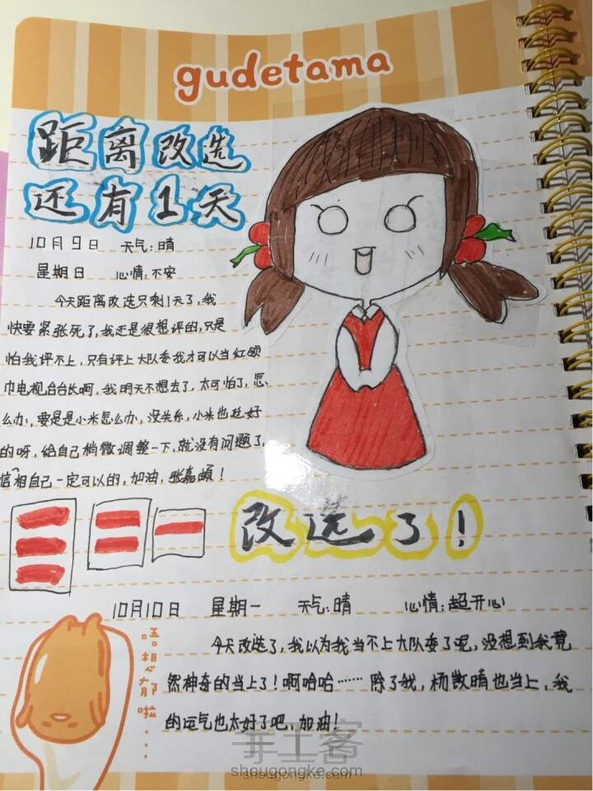 gudetama
距离改选
还有1天
10月9日 天气:晴
星期日 心情:不安
今天距离改选只剩1天了,我
快要紧张死了,我还是很想评的,只是
怕我评不上,只有评上大队委我才可以当红领
巾电视台台长啊,我明天不想去了,太可怕了,怎
么办,要是是小米怎么办,没关系,小米也挺好
的呀,给自己稍微调整一下,就没有问题了,
信相自己一定可以的,加油,张嘉颐!
改选了!
10月10日 星期一 天气:晴 心情:超开心
今天改选了,我以为我当不上大队委了呢,没想到我竟
然神奇的当上了!啊哈哈……除了我,杨数晴也当上,我
的运气也太好了吧,加油!
手工客
shougongke.com